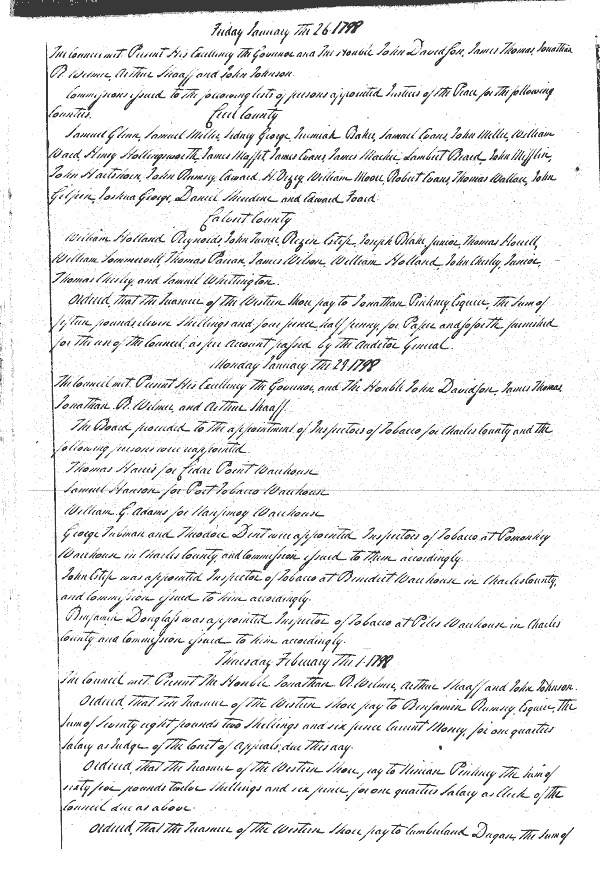 Friday January the 26. 1798
The Council met. Present His Excellency the Governor and The Honble John Davidson, James Thomas, Jonathan
R. Wilmer, Arthur Shaaff and John Johnson.
Commissions issued to the following lists of persons appointed Justices of the Peace for the following
Counties.
Cecil County
Samuel Glenn, Samuel Miller, Sidney George, Jeremiah Baker, Samuel Evans, John Miller, William
Ward, Henry Hollingsworth, James Moffit, James Evans, James Mackie, Lambert Beard, John Mifflin,
John Hartshorn, John Rumsey, Edward H. Vezey, William Moore, Robert Evans, Thomas Wallace, John
Gilpin, Joshua George, Daniel Sheredine and Edward Foard.
Calvert County
William Holland Reynolds, John Turner, Rezin Estep, Joseph Blake junior, Thomas Howell,
William Sommervell, Thomas Parran, James Wilson, William Holland, John Chesley, Junior,
Thomas Chesley, and Samuel Whittington.
Ordered, that the Treasurer of the Western Shore pay to Jonathan Pinkney, Esquire, the sum of
fifteen pounds eleven shillings and four pence, half penny, for Paper and so forth furnished
for the use of the Council, as per Account passed by the Auditor General.
Monday January the 29. 1798
The Council met. Present His Excellency the Governor, and The Honble John Davidson, James Thomas,
Jonathan R. Wilmer, and Arthur Shaaff.
The Board proceeded to the appointment of Inspectors of Tobacco for Charles County and the
following persons were reappointed.
Thomas Harris for Cedar Point Warehouse
Samuel Hanson for Port Tobacco Warehouse
William G. Adams for Nanjemoy Warehouse
George Tubman and Theodore Dent were appointed Inspectors of Tobacco at Pomonkey
Warehouse in Charles County and Commission issued to them accordingly.
John Estep was appointed Inspector of Tobacco at Benedict Warehouse in Charles County,
and Commission issued to him accordingly.
Benjamin Douglass was appointed Inspector of Tobacco at Piles Warehouse in Charles
County and Commission issued to him accordingly.
Thursday February the 1. 1798
The Council met. Present The Honble Jonathan R. Wilmer, Arthur Shaaff and John Johnson.
Ordered, that the Treasurer of the Western Shore pay to Benjamin Rumsey, Esquire, the
sum of seventy eight pounds two shillings and six pence Current Money, for one quarters
salary as Judge of the Court of Appeals, due this day.
Ordered, that the Treasurer of the Western Shore, pay to Ninian Pinkney the sum of
sixty five pounds twelve shillings and six pence, for one quarters Salary as Clerk of the
Council due as above.
Ordered, that the Treasurer of the Western Shore pay to Cumberland Dugan, the sum of